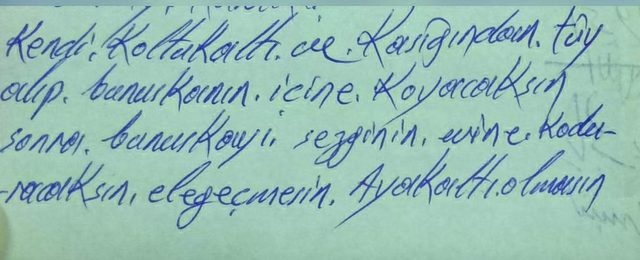 Kendi. Koltukaltı. ve. Kasığından. tüy
alıp. bunu Kanın. içine. Koyacaksın
sonra. bunu Kayi. sezginin. evine. Kodu-
-racaksın. elegeçmesin. Ayakaltı. olmasın